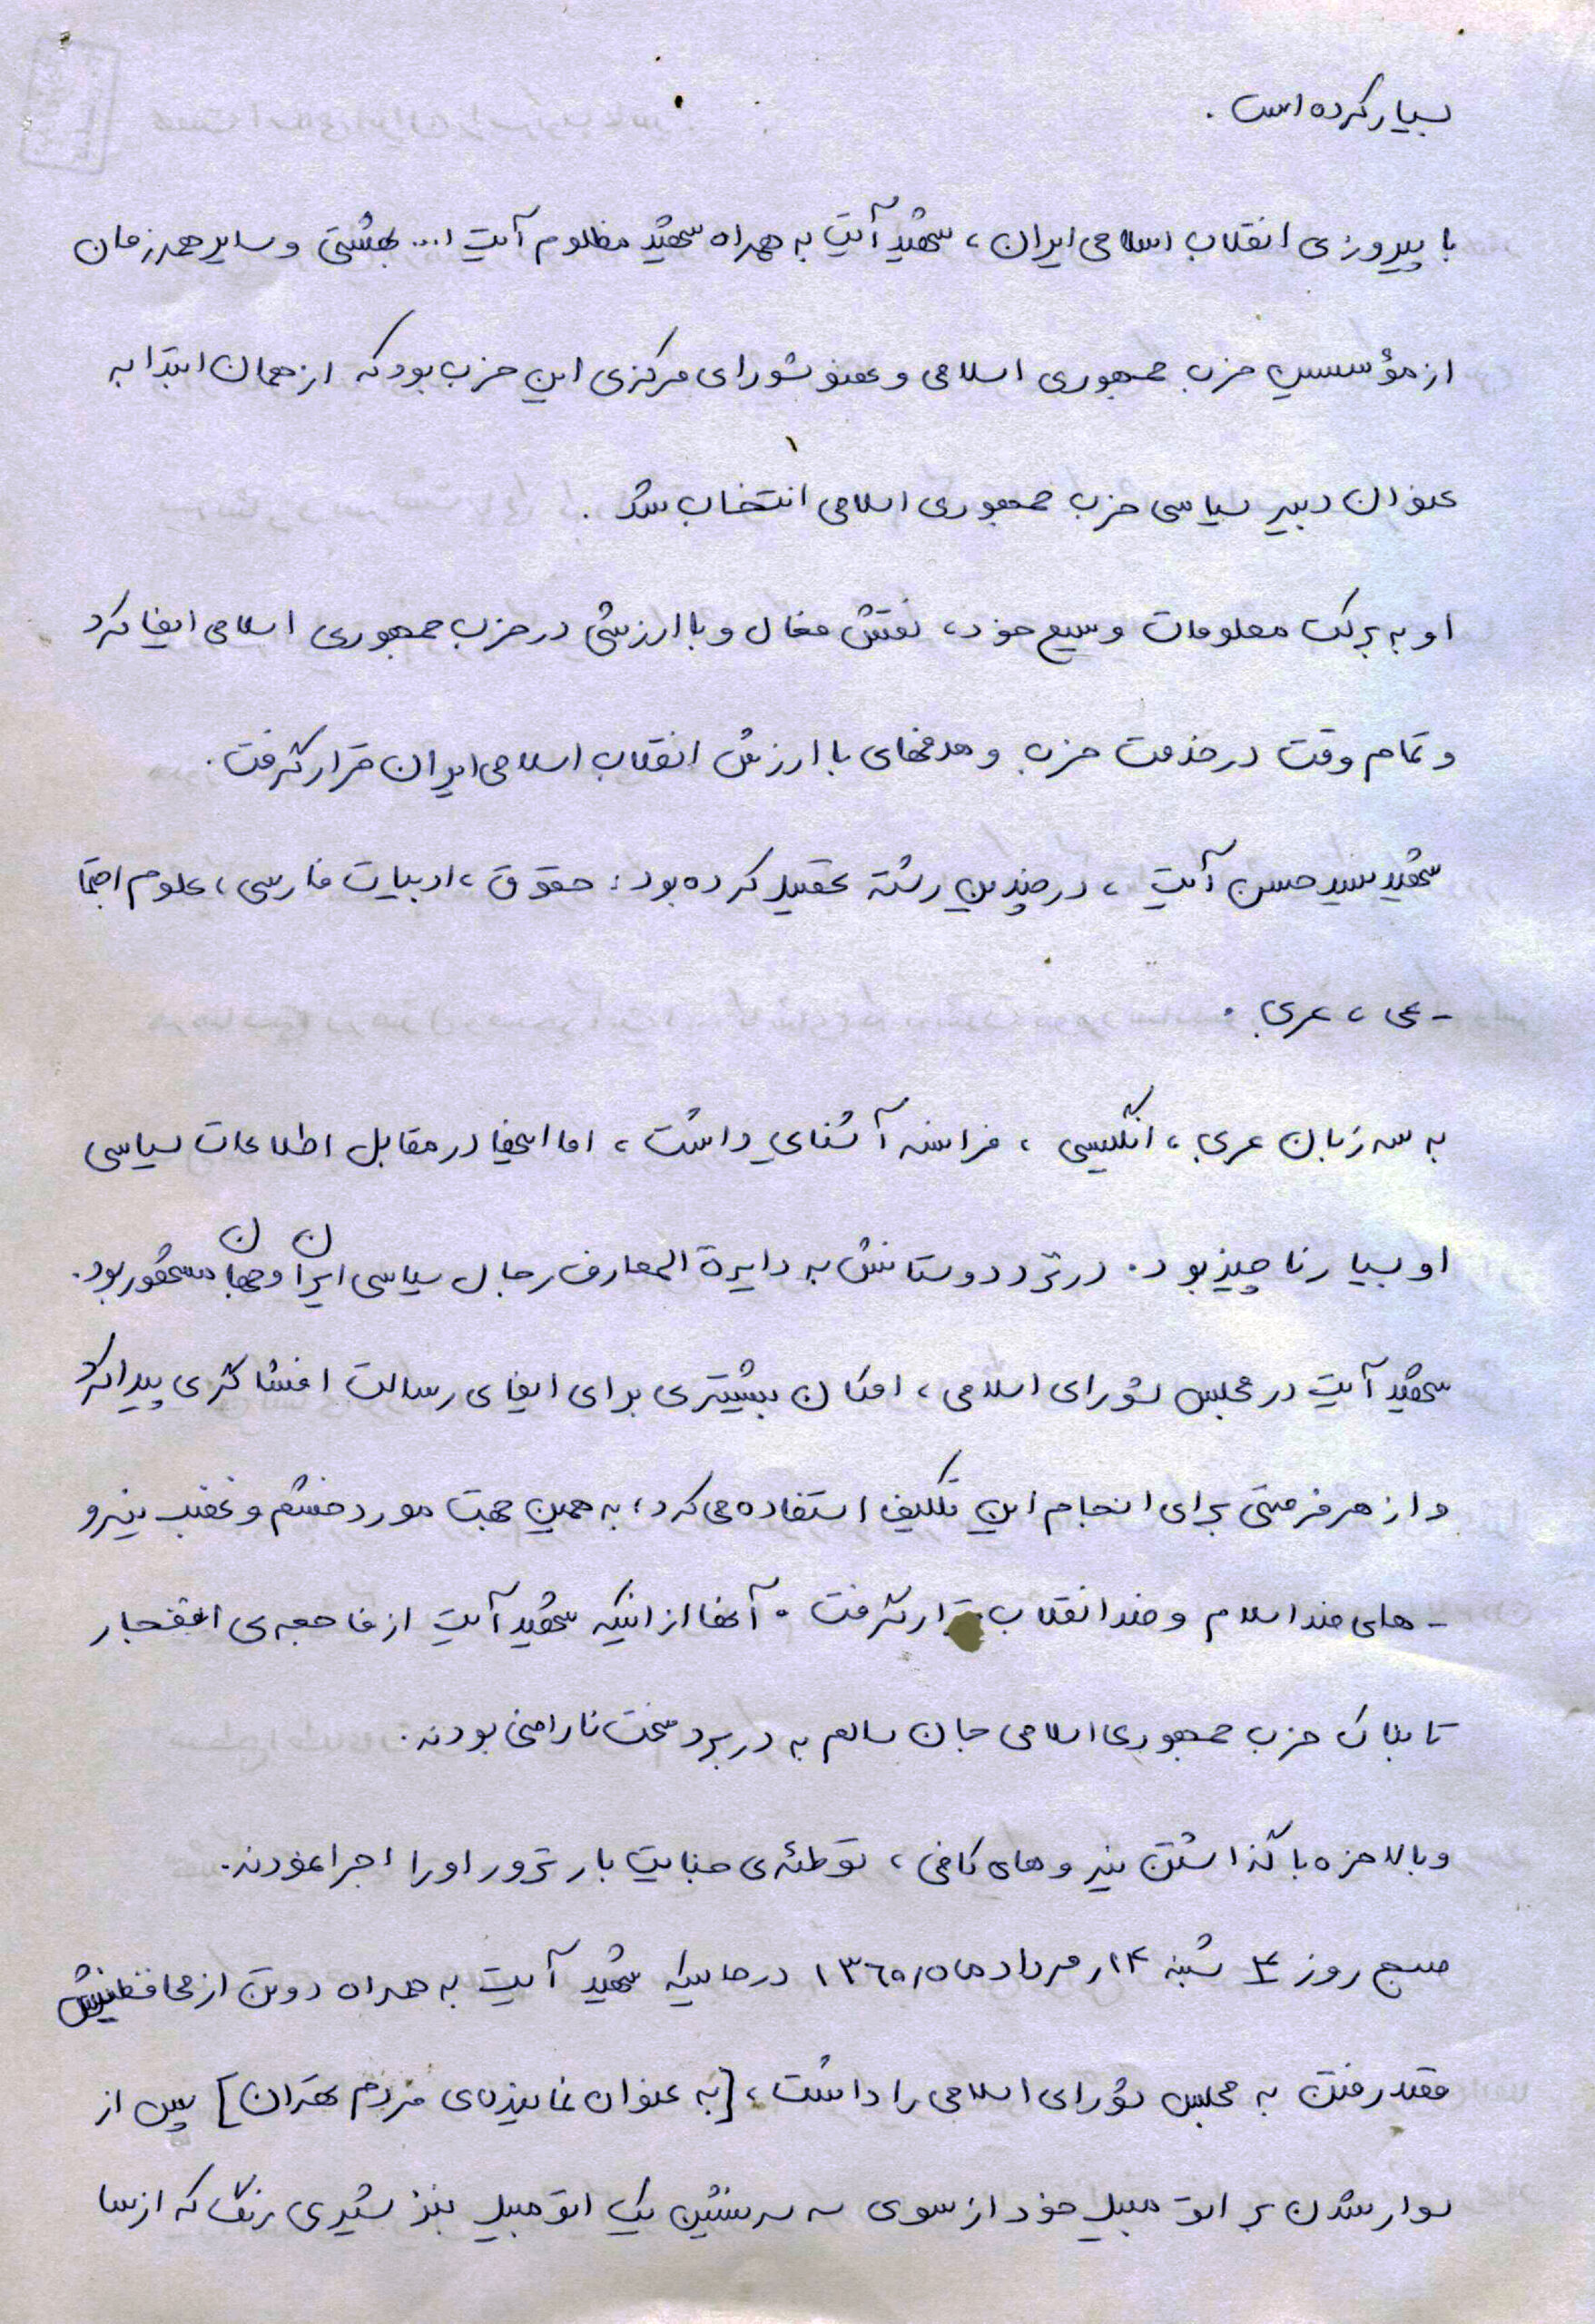 بسیار کرده است .
با پیروزی انقلاب اسلامی ایران ، شهید آیت به همراه شهید مظلوم آیت ا... بهشتی و سایر همرزمان
از مؤسسین حزب جمهوری اسلامی و عضو شورای مرکزی این حزب بود که از همان ابتدا به
عنوان دبیر سیاسی حزب جمهوری اسلامی انتخاب شد .
او به برکت معلومات وسیع خود ، نقش فعال و با ارزشی در حزب جمهوری اسلامی ایفا کرد
و تمام وقت در خدمت حزب و هدفهای با ارزش انقلاب اسلامی ایران قرار گرفت .
شهید سید حسن آیت ، در چندین رشته تحصیل کرده بود : حقوق ، ادبیات فارسی ، علوم اجتما
- عی ، عربی .
به سه زبان عربی ، انگلیسی ، فرانسه آشنایی داشت ، اما اینها در مقابل اطلاعات سیاسی
او بسیار ناچیز بود . در نزد دوستانش به دایرة المعارف رجال سیاسی ایران و جهان مشهور بود .
شهید آیت در مجلس شورای اسلامی ، امکان بیشتری برای ایفای رسالت افشاگری پیدا کرد
و از هر فرصتی برای انجام این تکلیف استفاده می کرد ؛ به همین جهت مورد خشم و غضب نیرو
- های ضد اسلام و ضد انقلاب قرار گرفت . آنها از اینکه شهید آیت از فاجعه ی انفجار
تابناک حزب جمهوری اسلامی جان سالم به در برد سخت ناراضی بودند .
و بالاخره با گذاشتن نیروهای کافی ، توطئه ی جنایت بار ترور او را اجرا نمودند .
صبح روز ۴ شنبه ۱۴ر مرداد ماه/ ۱۳۶۰ در حالیکه شهید آیت به همراه دو تن از محافظینش
قصد رفتن به مجلس شورای اسلامی را داشت ، [به عنوان نماینده ی مردم تهران] پس از
سوار شدن بر اتومبیل خود از سوی سه سرنشین یک اتومبیل بنز شیری رنگ که از سا